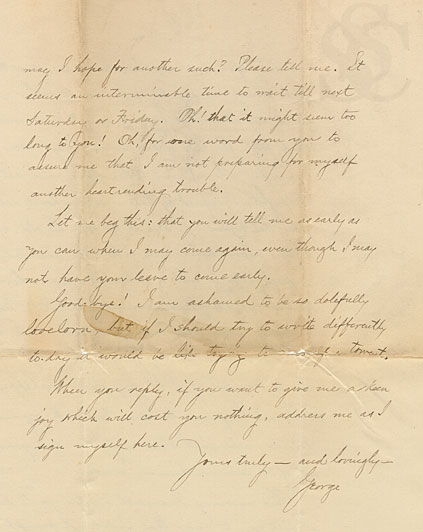 may I hope for another such? Please tell me. It
seems an interminable time to wait till next
Saturday or Friday. Oh! that it might seem too
long to you! Oh, for one word from you to
assure me that I am not preparing for myself
another heart rending trouble.
Let me beg this: that you will tell me as early as
you can when I may come again, even though I may
not have your leave to come early.
Good-bye! I am ashamed to be so dolefully
lovelorn, but if I should try to write differently
to-day it would be like trying to a torrent.
When you reply, if you want to give me a keen
joy which will cost you nothing, address me as I
sign myself here.
Yours truly — and lovingly —
George